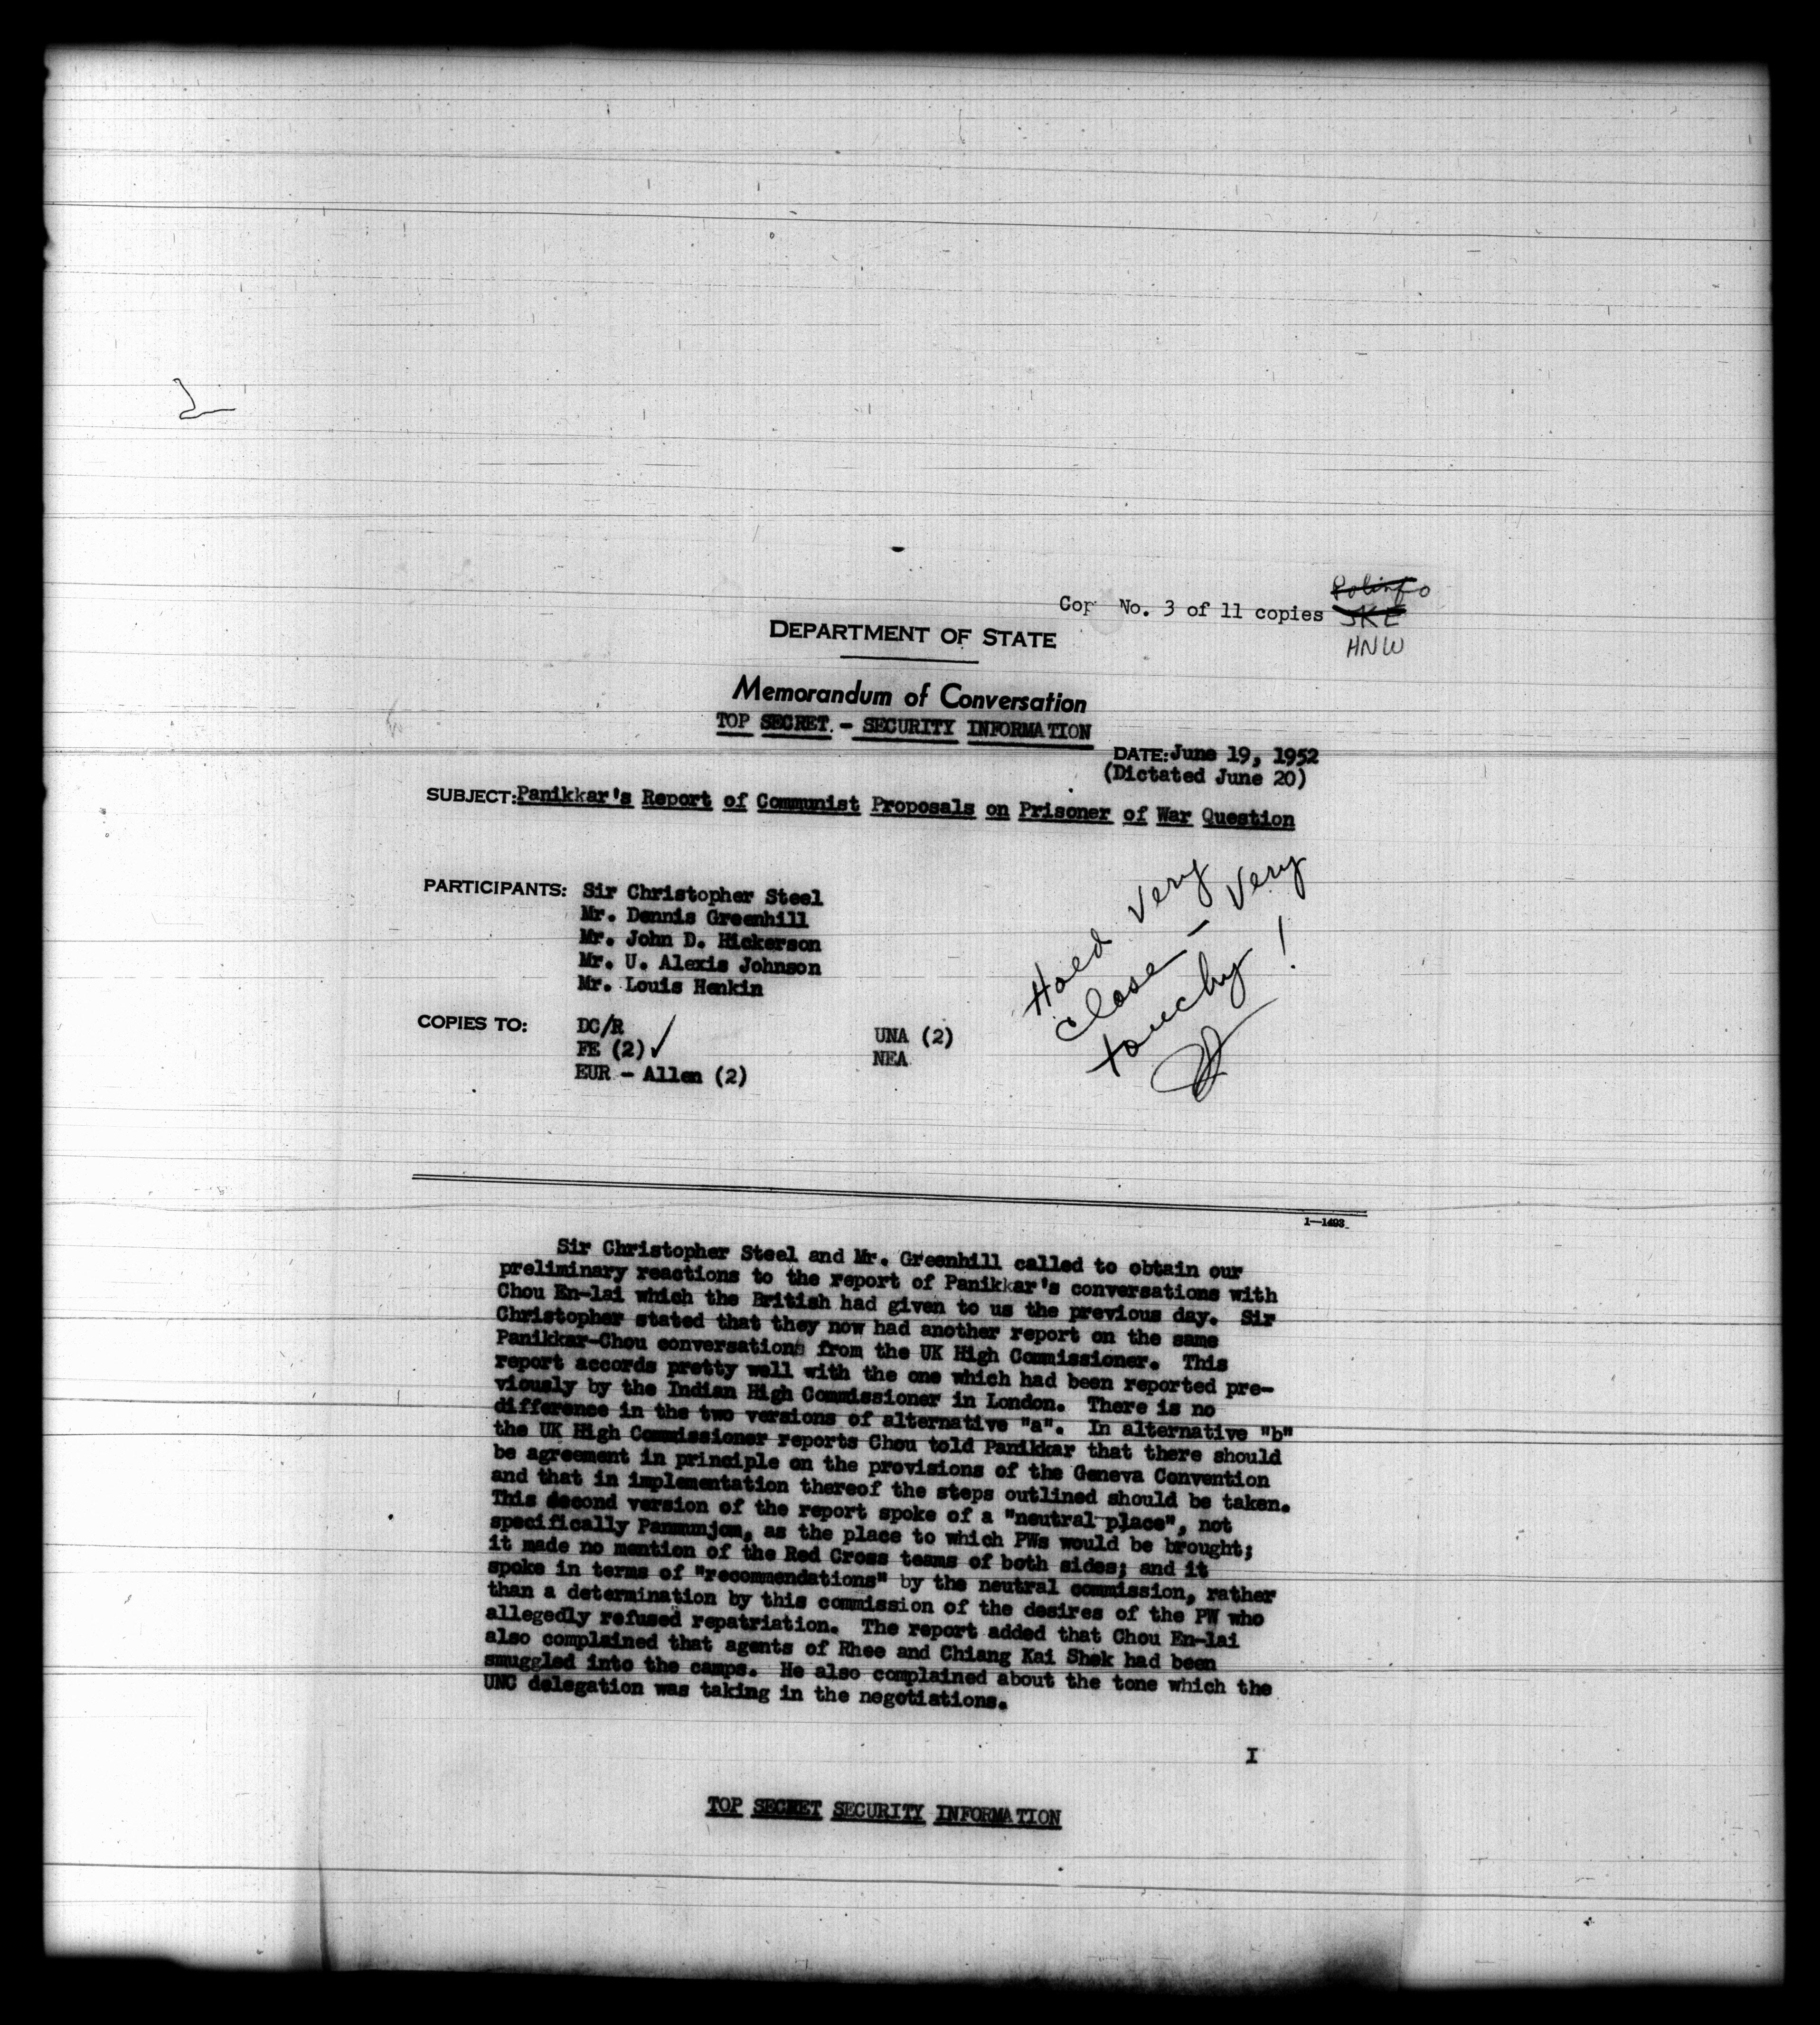 Cop No. 3 of 11 copies
Polinfo
JKE
HNW
DEPARTMENT OF STATE
Memorandum of Conversation
TOP SECRET - SECURITY INFORMATION
DATE: June 19, 1952
(Dictated June 20)
SUBJECT: Panikkar's Report of Communist Proposals on Prisoner of War Question
PARTICIPANTS: Sir Christopher Steel
Mr. Dennis Greenhill
Mr. John D. Hickerson
Mr. U. Alexis Johnson
Mr. Louis Henkin
Hold very
close - very
touchy!
COPIES TO: DC/R
FE (2) ✓
EUR - Allen (2)
UNA (2)
NEA
1-1493
Sir Christopher Steel and Mr. Greenhill called to obtain our
preliminary reactions to the report of Panikkar's conversations with
Chou En-lai which the British had given to us the previous day. Sir
Christopher stated that they now had another report on the same
Panikkar-Chou conversations from the UK High Commissioner. This
report accords pretty well with the one which had been reported pre-
viously by the Indian High Commissioner in London. There is no
difference in the two versions of alternative "a". In alternative "b"
the UK High Commissioner reports Chou told Panikkar that there should
be agreement in principle on the provisions of the Geneva Convention
and that in implementation thereof the steps outlined should be taken.
This second version of the report spoke of a "neutral place", not
specifically Panmunjom, as the place to which PWs would be brought;
it made no mention of the Red Cross teams of both sides; and it
spoke in terms of "recommendations" by the neutral commission, rather
than a determination by this commission of the desires of the PW who
allegedly refused repatriation. The report added that Chou En-lai
also complained that agents of Rhee and Chiang Kai Shek had been
smuggled into the camps. He also complained about the tone which the
UNC delegation was taking in the negotiations.
I
TOP SECRET SECURITY INFORMATION